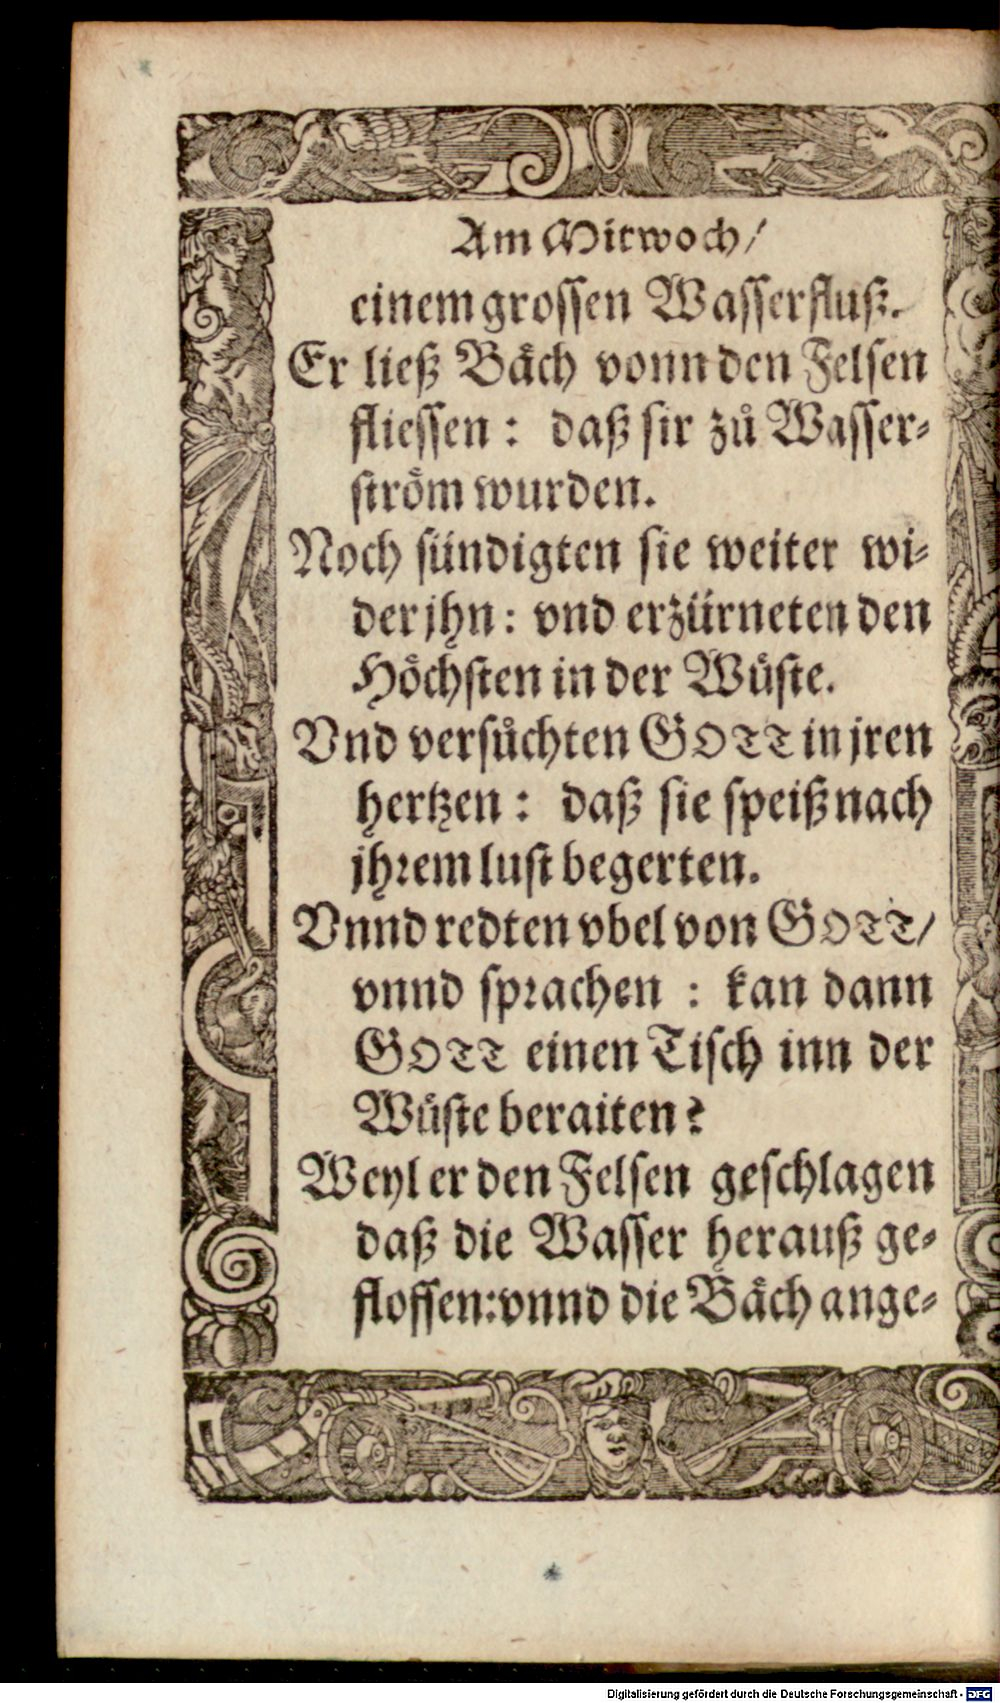 Am Mitwoch/
einem grossen Wasserfluß.
Er ließ Bäch vonn den Felsen
fliessen: daß sir zů Wasser-
ström wurden.
Noch sündigten sie weiter wi-
der jhn: vnd erzürneten den
Höchsten in der Wüste.
Vnd versůchten GOTT in jren
hertzen: daß sie speiß nach
jhrem lust begerten.
Vnnd redten vbel von GOTT/
vnnd sprachen: kan dann
GOTT einen Tisch inn der
Wüste beraiten?
Weyl er den Felsen geschlagen
daß die Wasser herauß ge-
flossen: vnnd die Bäch ange-
Digitalisierung gefördert durch die Deutsche Forschungsgemeinschaft - DFG